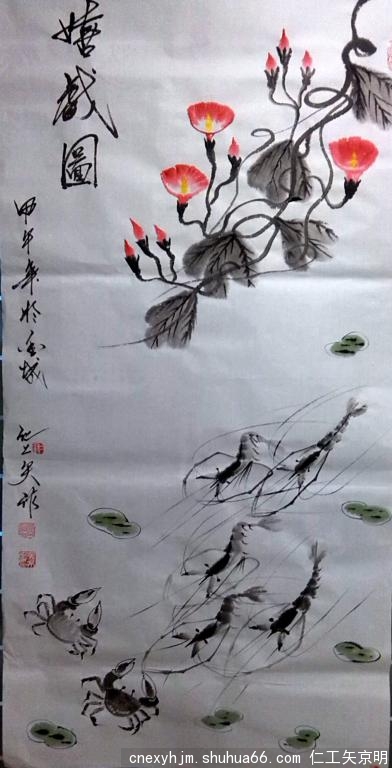 嬉戲圖
甲午年於金城
仁工矢作
cnexyhjm.shuhua66.com 仁工矢京明